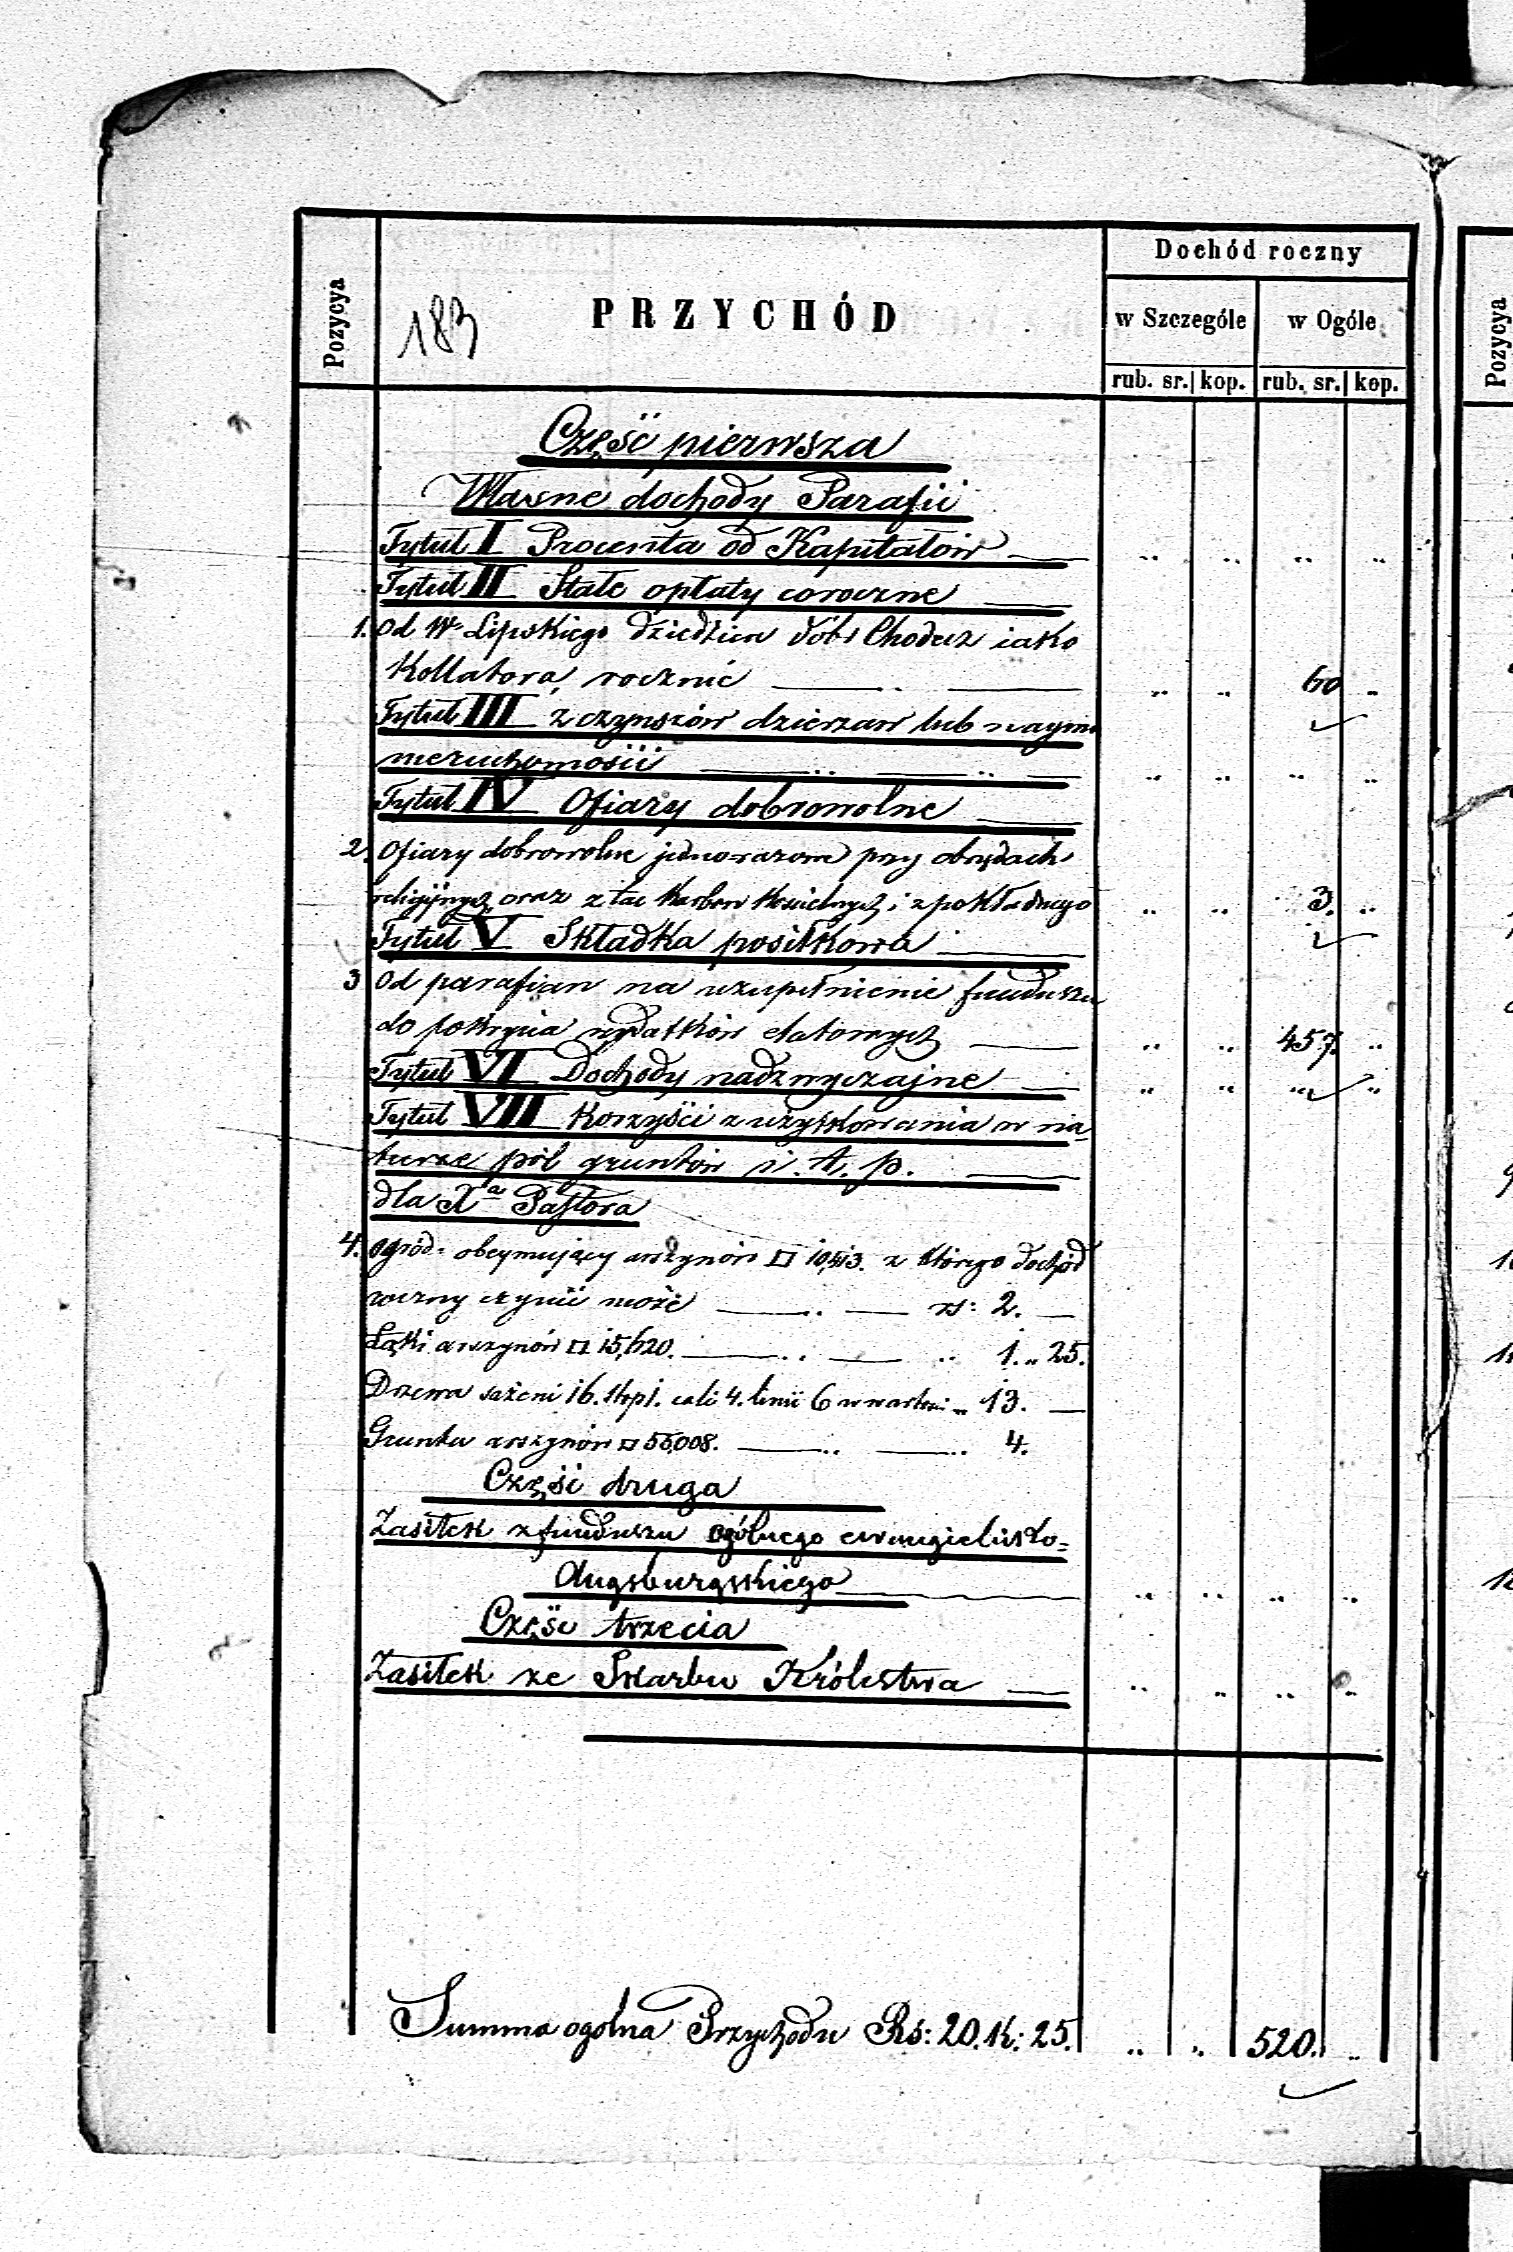 Dochód roczny
Pozycya
183
PRZYCHÓD
w Szczególe
w Ogóle
Pozycya
rub. sr.
kop.
rub. sr.
kop.
Część pierwsza
Własne dochody Parafii
Tytuł I Procenta od Kapitałów
Tytuł II Stałe opłaty coroczne
1. Od W. Lipskiego dziedzica dóbr Chodecz iako
Kollatora, rocznie 60
Tytuł III z czynszów dzierzaw lub naymu
nieruchomości
Tytuł IV Ofiary dobrowolne
2. Ofiary dobrowolne jednorazowe przy obrzędach
religijnych oraz z tac Karbon Kościelnych i z pokładnego 3.
Tytuł V Składka posiłkowa
3 Od parafian na uzupełnienie funduszu
do pokrycia wydatków etatowych 457.
Tytuł VI Dochody nadzwyczajne
Tytuł VII Korzyści z użytkowania w na
turze pól gruntów i. t. p.
dla Xa Pastora
4. Ogród obeymujący arszynów □ 10,413. z którego dochód
roczny czynić może rs: 2.
Łąki arszynów □ 15,620. 1. " 25.
Drzewa sążeni 16. stop 1. cali 4. linii 6 w wartości " 13.
Gruntu arszynów □ 56,008. 4.
Część druga
Zasiłek z funduszu ogólnego ewangielicko=
Augsburgskiego
Część trzecia
Zasiłek ze Skarbu Królestwa
Summa ogólna Przychodu Rs: 20. K: 25. 520.